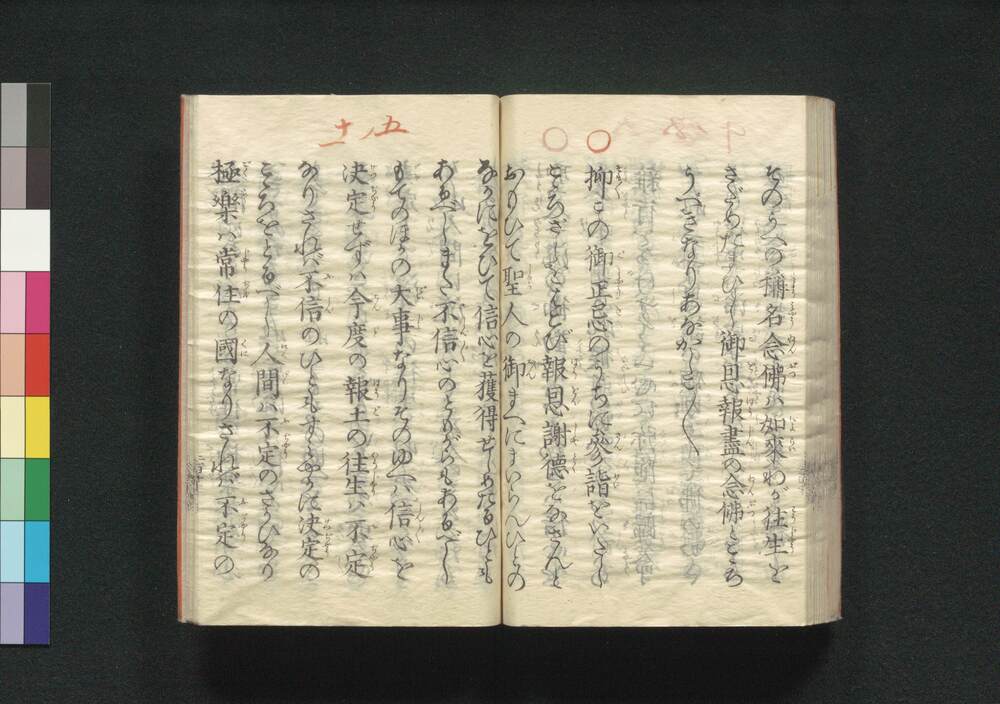 そのうへの稱名念佛は如來わが往生を
さだめたまひし御恩報盡の念佛とこゝろ
うべきなりあなかしこ〱
抑この御正忌のうちに參詣をいたし
こゝろざしをはこび報恩謝德をなさんと
おもひて聖人の御まへにまいらんひとの
なかにをひて信心を獲得せしめたるひとも
あるべしまた不信心のともがらもあるべし
もてのほかの大事なりそのゆへは信心を
決定せずは今度の報土の往生は不定
なりされば不信のひともすみやかに決定の
こゝろをとるべし人間は不定のさかひなり
極樂は常住の國なりされば不定の
五ノ十一